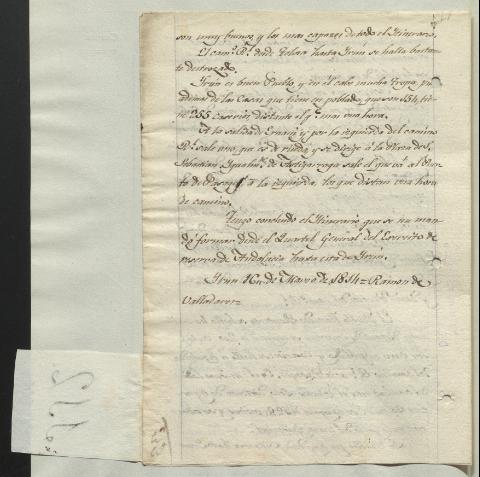 son muy buenos y los mas capaces de todo el Itinerario.
El cam.º R.l desde Tolosa hasta Irun se halla bastan-
te destrozado.
Irun es buen Pueblo, y en el cabe mucha tropa, pu
ademas de las Casas que tiene en poblado, que son 154, tie-
ne 355 caserios distante el q.e mas una hora.
A la salida de Ernani y por la izquierda del camino
R.l sale otro, que es de rueda y se dirije á la Plaza de S.n
Sebastian. Igualm.te de Astigarraga sale el que vá al Puer-
to de Pasages á la izquierda, los que distan una hora
de camino.
Tengo concluido el Itinerario que se me man-
dó formar desde el Quartel General del Exercito de
reserva de Andalucia hasta esta de Irun.
Irun 16 de Marzo de 1814 = Ramon de
Valladares =